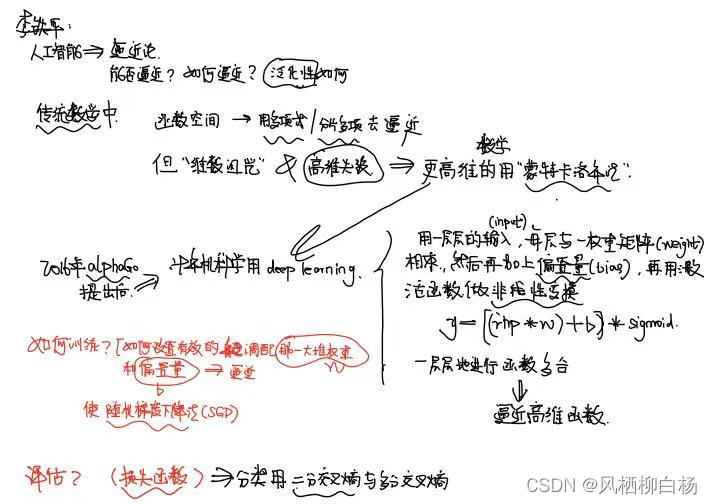 人工智能⇒逼近论
能否逼近？如何逼近？泛化性如何
传统数学中
函数空间 → 用多项式/分片多项去逼近
但"维数诅咒" & 高维失效 ⇒ 数学
更高维的用"蒙特卡洛算法".
2016年alphaGo
提出后 ⇒ 计算机科学用deep learning.
(input)
用一层层的输入,每层与一权重矩阵(weight)
相乘,然后再加上偏置量(bias),再用激
活函数做非线性变换
y=[(inp*w)+b]*sigmoid.
一层层地进行函数复合
⇓
逼近高维函数
如何训练?「如何设置有效的 调配那一大堆权重
w
和偏置量 ⇒ 逼近
b
使随机梯度下降法(SGD)
评估？(损失函数)⇒分类用二分交叉熵与多分交叉熵
CSDN @风栖柳白杨